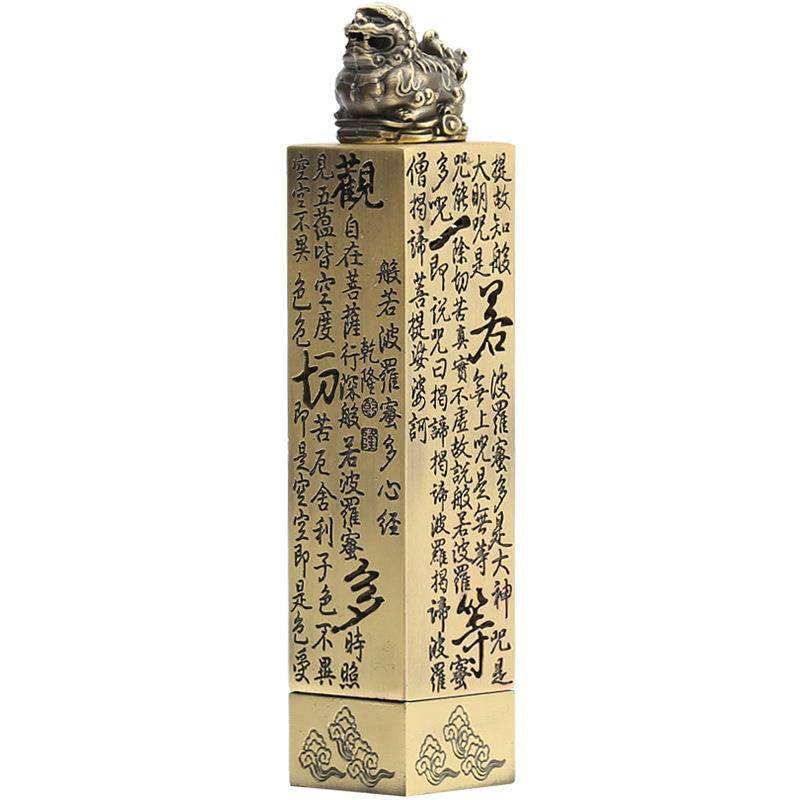 般若波羅蜜多心經
乾隆
觀自在菩薩行深般若波羅蜜多時照
見五蘊皆空度一切苦厄舍利子色不異
空空不異色色即是空空即是色受
提故知般若波羅蜜多是大神咒是
大明咒是無上咒是無等等
咒能除一切苦真實不虛故説般若波羅蜜
多咒即説咒曰揭諦揭諦波羅揭諦波羅
僧揭諦菩提娑婆訶